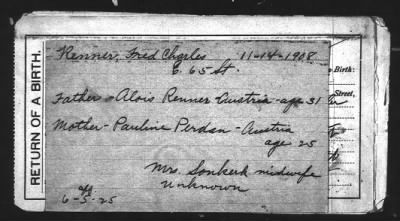 RETURN OF A BIRTH.
Renner, Fred Charles 11-14-1908
E. 65 St.
Birth:
Street,
Father - Alois Renner Austria - age 31
Mother - Pauline Perdan - Austria
age 25
Mrs. midwife
unknown
6-5-25